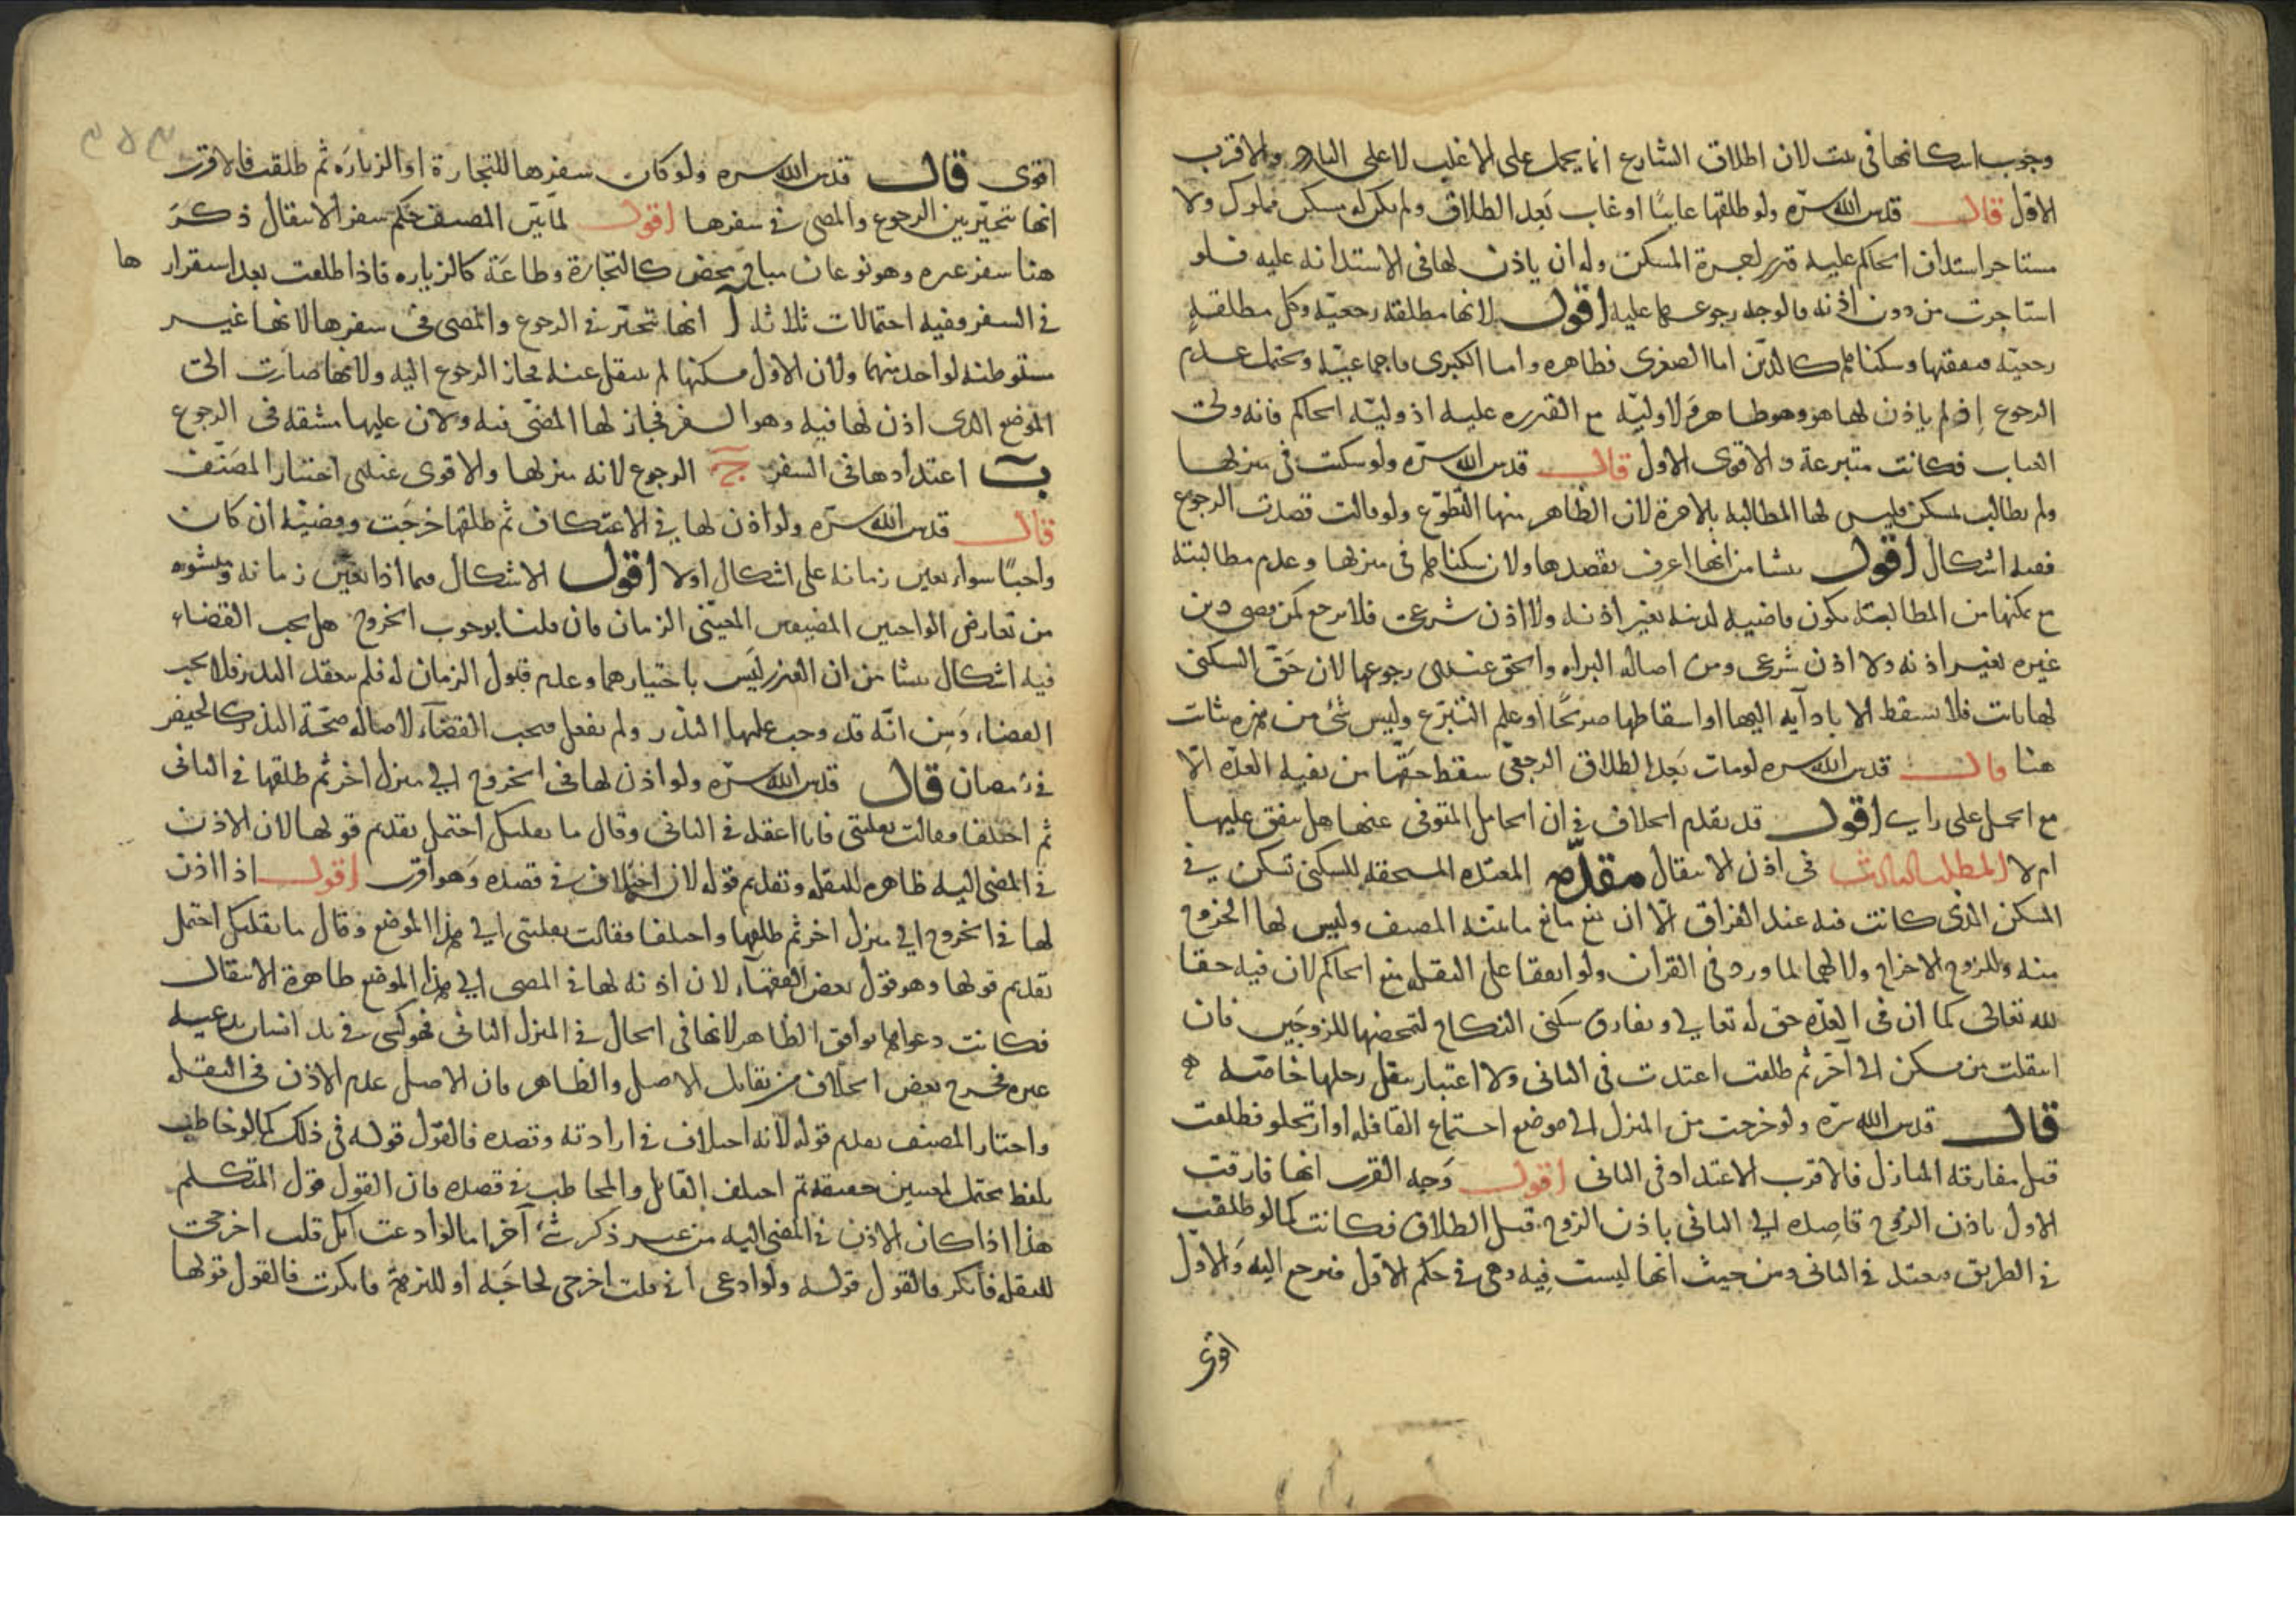 وجوب اسكانها فى بيت لان اطلاق الشارع انما يحمل على الاغلب لا على النادر والاقرب
الاول قال قدس الله سره ولو طلقها غايبًا او غاب بَعد الطلاق ولم يكن له مسكن مملوك ولا
مستاجر استدان الحاكم عليه قدر اجرة المسكن وله ان ياذن لها فى الاستدانه عليه فلو
استاجرت من دون اذنه فالوجه رجوعها عليه اقول لانها مطلقه رجعيّه وكل مطلقةٍ
رجعيّه فنفقتها وسكناها كالدّين اما الصغرى فظاهره واما الكبرى فاجماعيّه ويحتمل عدم
الرجوع اذ لم ياذن لها هو وهو ظاهر ولا وليّه مع القدره عليه اذ وليّه الحاكم فانه ولى
الغياب فكانت متبرعة والاقوى الاول قال قدس الله سرّه ولو سكنت فى منزلها
ولم تطالب بمسكن فليس لها المطالبه بالاجرة لان الظاهر منها التطوّع ولو قالت قصدت الرجوع
ففيه اشكال اقول ينشا من انها اعرف بقصدها ولان سكناها فى منزلها وعدم مطالبته
مع تمكنها من المطالبة يكون قاضيه لدينه بغير اذنه ولا اذن شرعى فلا ترجع كمن قضى دين
غيره بغير اذنه ولا اذن شرعى ومن اصاله البراه والحق عندى رجوعها لان حَقّ السكنى
لها ثابت فلا يسقط الا بادآيه اليها او اسقاطها صريحًا او علم التبرّع وليس شئ من هذه بثابت
هنا قال قدس الله سره لو مات بَعد الطلاق الرجعى سقط حقّها من بقيه العدّه الّا
مع الحمل على راى اقول قد تقدم الخلاف فى ان الحامل المتوفى عنها هل ينفق عليها
ام لا المطلب الثالث فى اذن الانتقال مقدّمه المعتده المستحقه للسكنى تسكن فى
المسكن الذى كانت فيه عند الفراق الّا ان يمنع مانع مما بيّنه المصنف وليس لها الخروج
منه وللزوج الاخراج ولا لهما لما ورد فى القران ولو اتفقا على النقله منع الحاكم لان فيه حقا
لله تعالى كما ان فى العدّه حق له تعالى ويفارق سكنى النكاح لتمحضها للزوجَين فان
انتقلت من مسكن الى آخر ثم طلقت اعتدت فى الثانى ولا اعتبار بنقل رحلها خاصّه
قال قدس الله سرّه ولو خرجت من المنزل الى موضع اجتماع القافله او ارتحلو فطلقت
قبل مفارقه المنازل فالاقرب الاعتداد فى الثانى اقول وَجه القرب انها فارقت
الاول باذن الزوج قاصده الى الثانى باذن الزوج قبل الطلاق فكانت كما لو طلقت
فى الطريق فتعتد فى الثانى ومن حيث انها ليست فيه وهى فى حكم الاول فترجع اليه وَالاول
اقوى
اقوى قال قدس الله سره ولو كان سفرها للتجارة او الزيارَه ثم طلقت فالاقرب
انها تتخيّر بين الرجوع والمضى فى سفرها اقول لمّا بيّن المصنف حكم سفر الانتقال ذكرَ
هنا سفر غيره وهو نوعان مباح محض كالتجارة وطاعَة كالزياره فاذا طلقت بعد استقرارها
فى السفر ففيه احتمالات ثلاثه آ انها تتخيّر فى الرجوع والمضى فى سفرها لانها غير
مستوطنه لواحد منهما ولان الاول مسكنها لم تنتقل عنه فجاز الرجوع اليه ولانها صارت الى
الموضع الذى اذن لها فيه وهو السفر فجاز لها المضىّ فيه ولان عليها مشقه فى الرجوع
ب اعتدادها فى السفر ج الرجوع لانه منزلها والاقوى عندى اختيار المصَنّف
قال قدس الله سرّه ولو اذن لها فى الاعتكاف ثم طلقها خرجَت وقضيَته ان كان
واجبًا سواء تعين زمانه على اشكال او لا اقول الاشكال فيما اذا تعيّن زمانه ومنشوه
من تعارض الواجبين المضيقين المعيّنى الزمان فان قلنا بوجوب الخروج هل يجب القضاء
فيه اشكال ينشا من ان العذر ليَس باختيارهما وعدم قبول الزمان له فلم ينعقد النذر فلا يجب
القضاء وَمِن انّه قد وجب عليها النذر ولم تفعل فيجب القضآء لاصاله صحّة النذر كالحيض
فى رمضان قال قدس الله سرّه ولو اذن لها فى الخروج الى منزل اخر ثم طلقها فى الثانى
ثم اختلفا فقالت نقلتنى فانا اعتد فى الثانى وقال ما نقلتك احتمل تقديم قولها لان الاذن
فى المضى اليه ظاهره للنقله وتقديم قوله لان اختلاف فى قصده وَهو اقرب اقول اذا اذن
لها فى الخروج الى منزل اخر ثم طلقها واختلفا فقالت نقلتنى الى هذا الموضع وقال ما نقلتك احتمل
تقديم قولها وهو قول بعض الفقهآء لان اذنه لها فى المضى الى هذا الموضع ظاهرة الانتقال
فكانت دعواها توافق الظاهر لانها فى الحال فى المنزل الثانى فهو كشى فى يد انسان يدعيه
غيره فخرج بعض الخلاف من تقابل الاصل والظاهر فان الاصل عدم الاذن فى النقله
واختار المصنف تقديم قوله لانه اختلاف فى ارادته وقصده فالقوَل قوله فى ذلك كما لو خاطب
بلفظ يحتمل لمعنيين حقيقه ثم اختلف القايل والمخاطب فى قصده فان القول قول المتكلم
هذا اذا كان الاذن فى المضى اليه من غير ذكر شئ آخر اما لو ادعت انك قلت اخرجى
للنقله فانكر فالقول قوله ولو ادعى انى قلت اخرجى لحاجَة او للنزهة فانكرت فالقول قولها